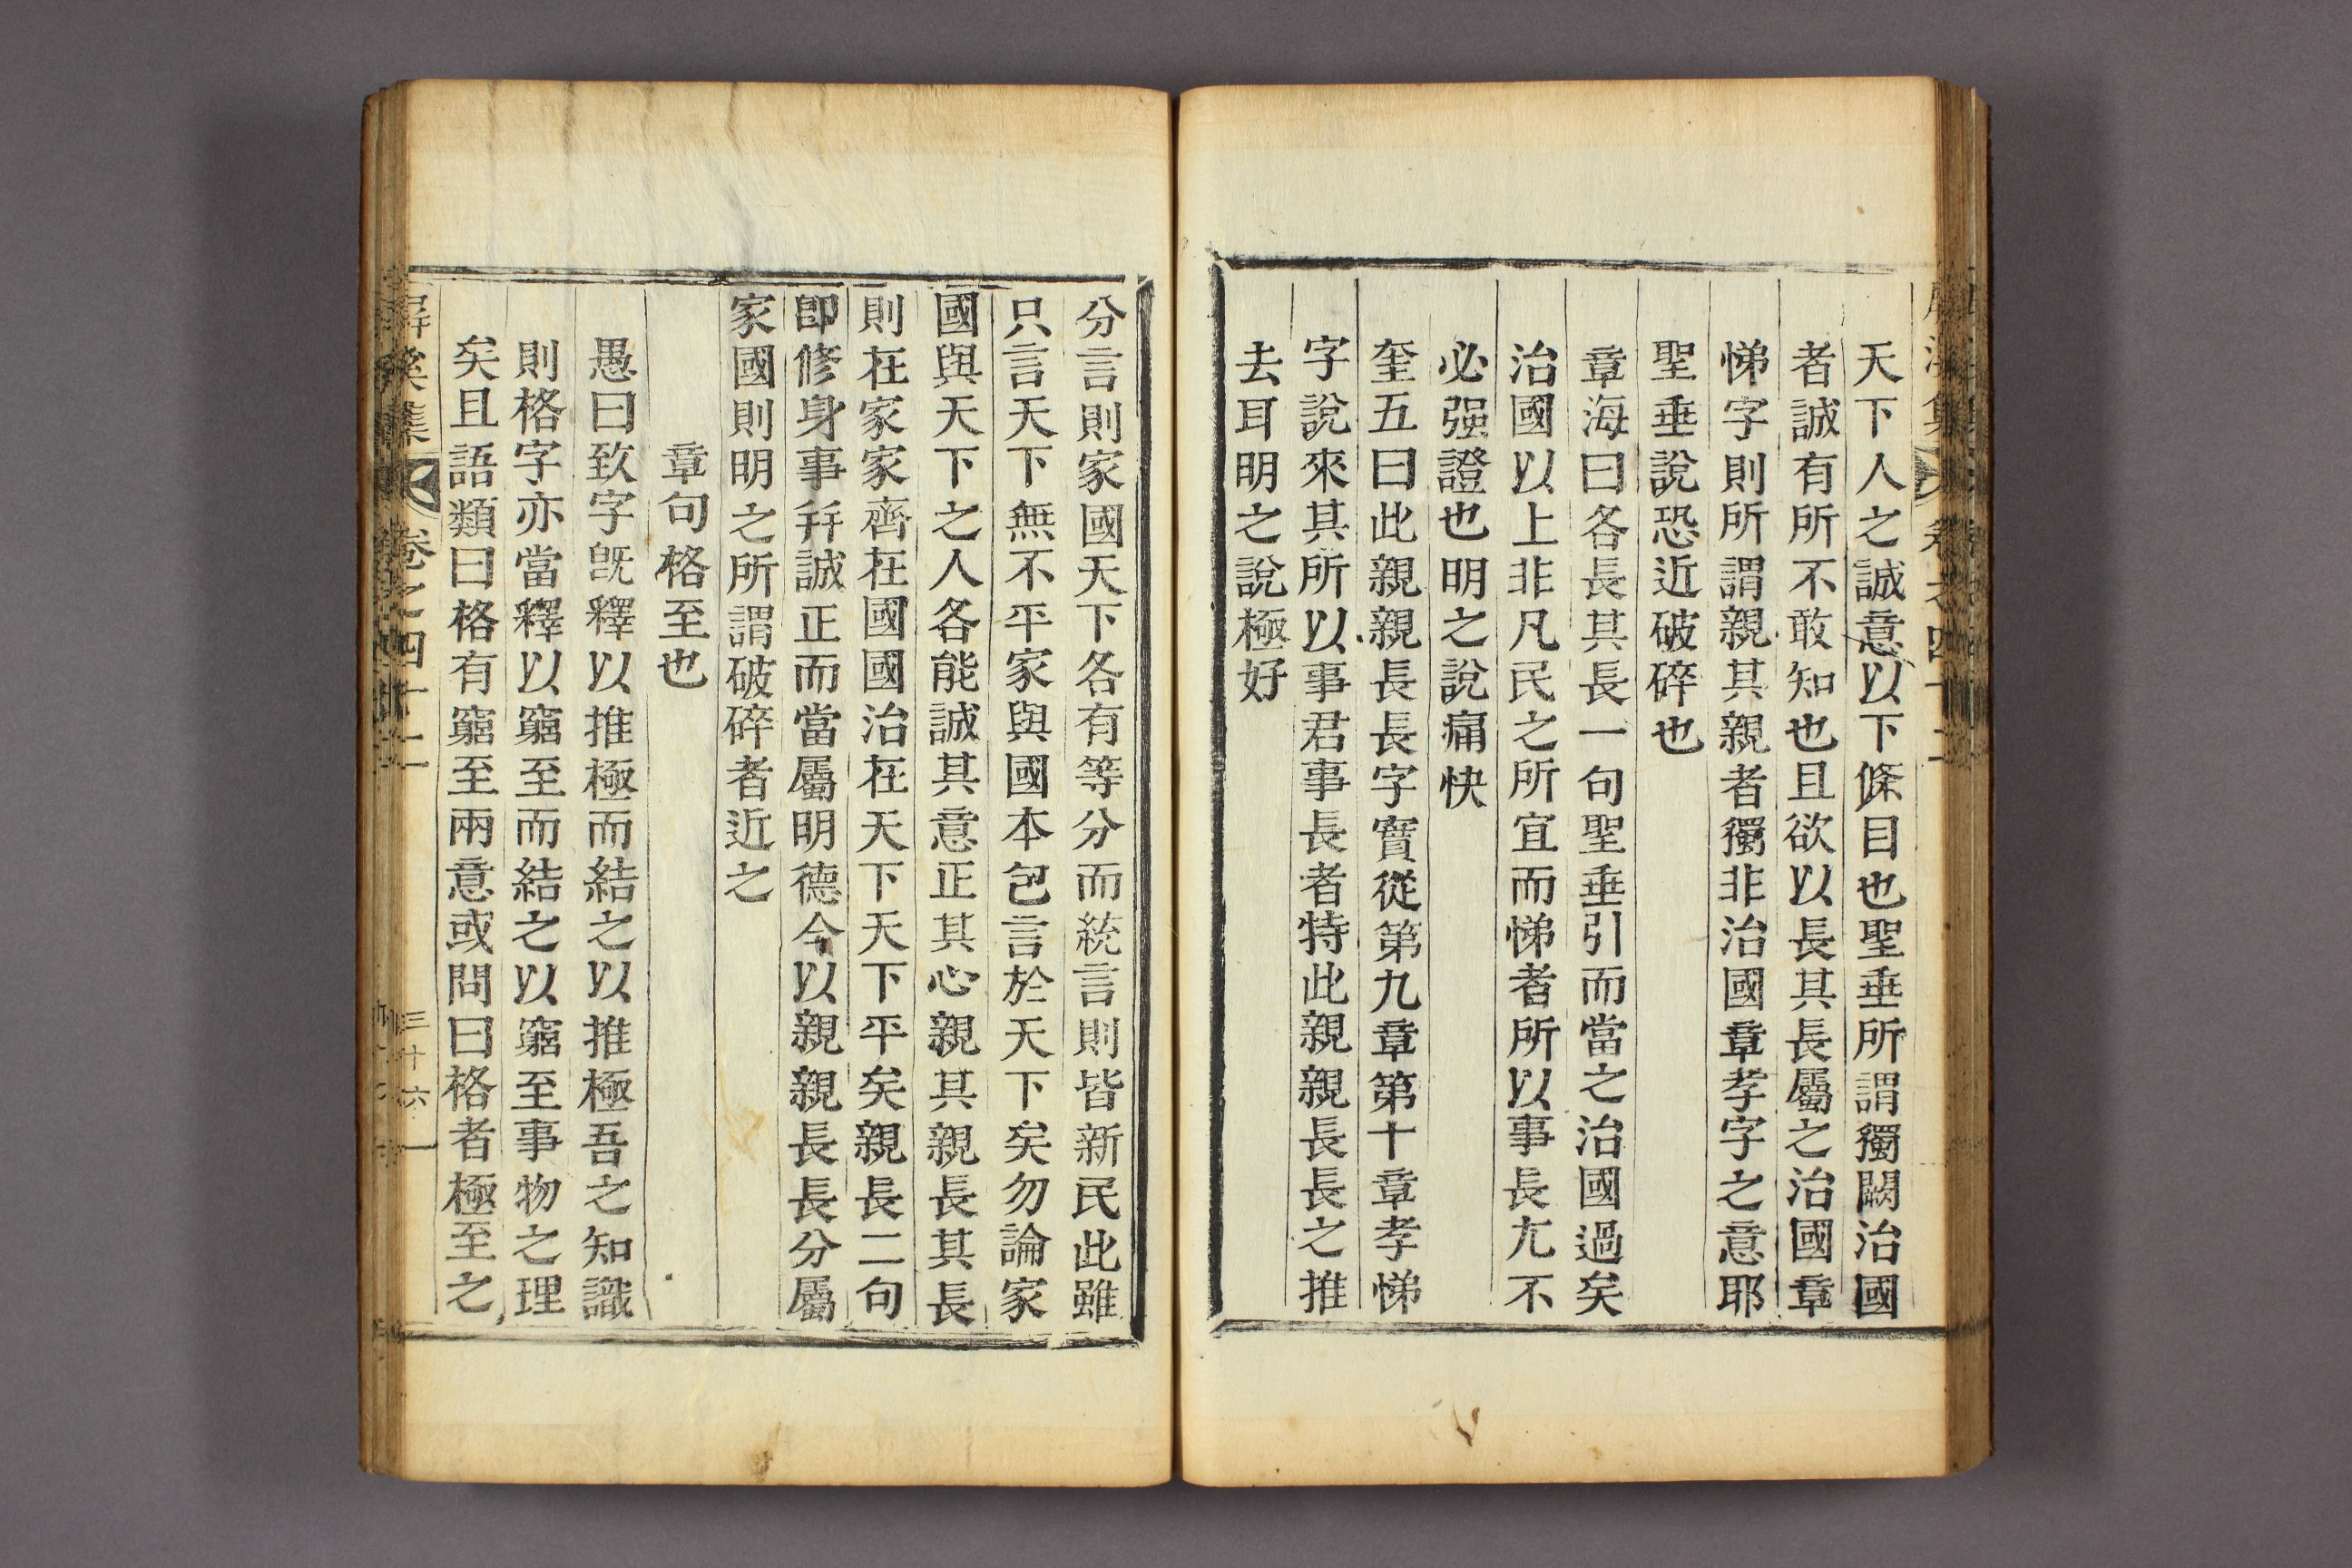 天下人之誠意以下條目也聖垂所謂獨闕治國
者誠有所不敢知也且欲以長其長屬之治國章
悌字則所謂親其親者獨非治國章孝字之意耶
聖垂說恐近破碎也
章海曰各長其長一句聖垂引而當之治國過矣
治國以上非凡民之所宜而悌者所以事長尤不
必强證也明之說痛快
奎五曰此親親長長字實從第九章第十章孝悌
字說來其所以事君事長者特此親親長長之推
去耳明之說極好
分言則家國天下各有等分而統言則皆新民此雖
只言天下無不平家與國本包言於天下矣勿論家
國與天下之人各能誠其意正其心親其親長其長
則在家家齊在國國治在天下天下平矣親長二句
卽修身事幷誠正而當屬明明德今以親親長長分屬
家國則明之所謂破碎者近之
章句格至也
愚曰致字旣釋以推極而結之以推極吾之知識
則格字亦當釋以窮至而結之以窮至事物之理
矣且語類曰格有窮至兩意或問曰格者極至之
屛溪集 卷之四十二 三十六